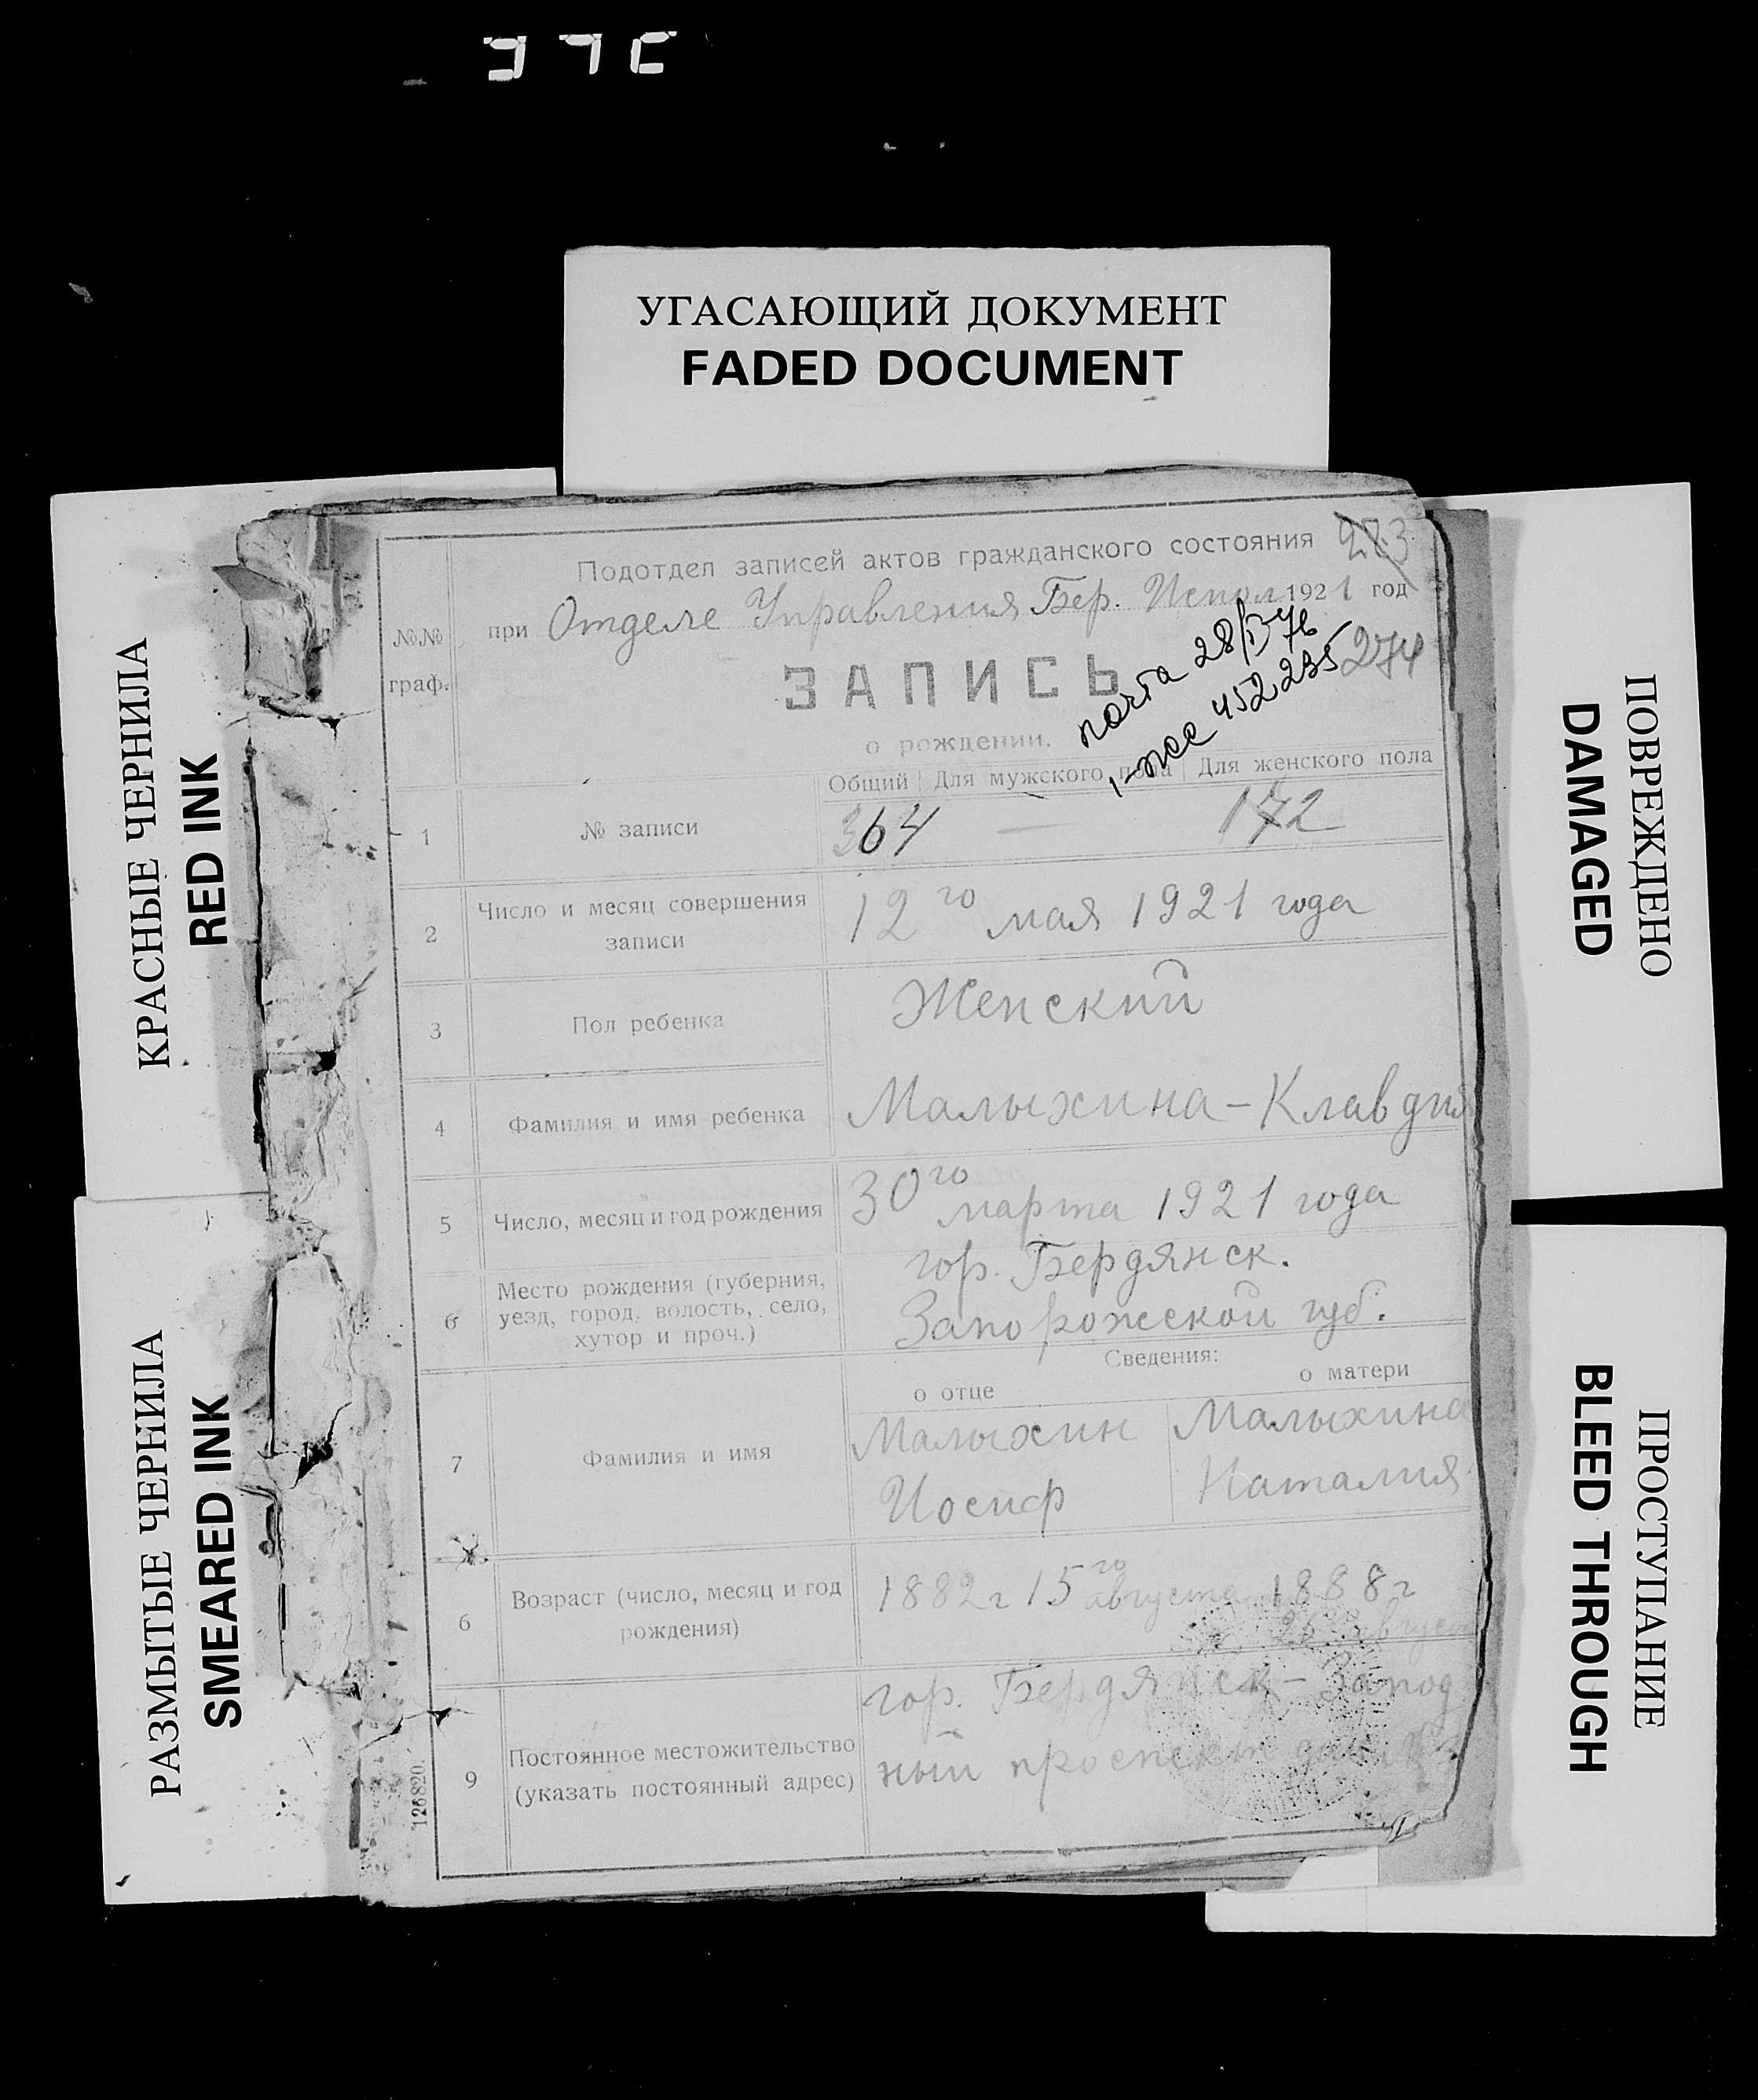 УГАСАЮЩИЙ ДОКУМЕНТ
FADED DOCUMENT
КРАСНЫЕ ЧЕРНИЛА
RED INK
РАЗМЫТЫЕ ЧЕРНИЛА
SMEARED INK
ПОВРЕЖДЕНО
DAMAGED
ПРОСТУПАНИЕ
BLEED THROUGH
283
Подотдел записей актов гражданского состояния
при Отделе Управления Бер. Испол 1921 год
274
почта 28/
452235
ЗАПИСЬ
о рождении.
№№ граф.
Общий Для мужского пола Для женского пола
1 № записи 364 — 172
2 Число и месяц совершения записи 12го мая 1921 года
3 Пол ребенка Женский
4 Фамилия и имя ребенка Малыхина - Клавдия
5 Число, месяц и год рождения 30го марта 1921 года
6 Место рождения (губерния, уезд, город, волость, село, хутор и проч.) гор. Бердянск.
Запорожской губ.
Сведения:
о отце о матери
7 Фамилия и имя Малыхин Малыхина
Иосиф Наталия
6 Возраст (число, месяц и год рождения) 1882г 15го августа 1888г
9 Постоянное местожительство (указать постоянный адрес) гор. Бердянск - Запад
ный проспект
126820